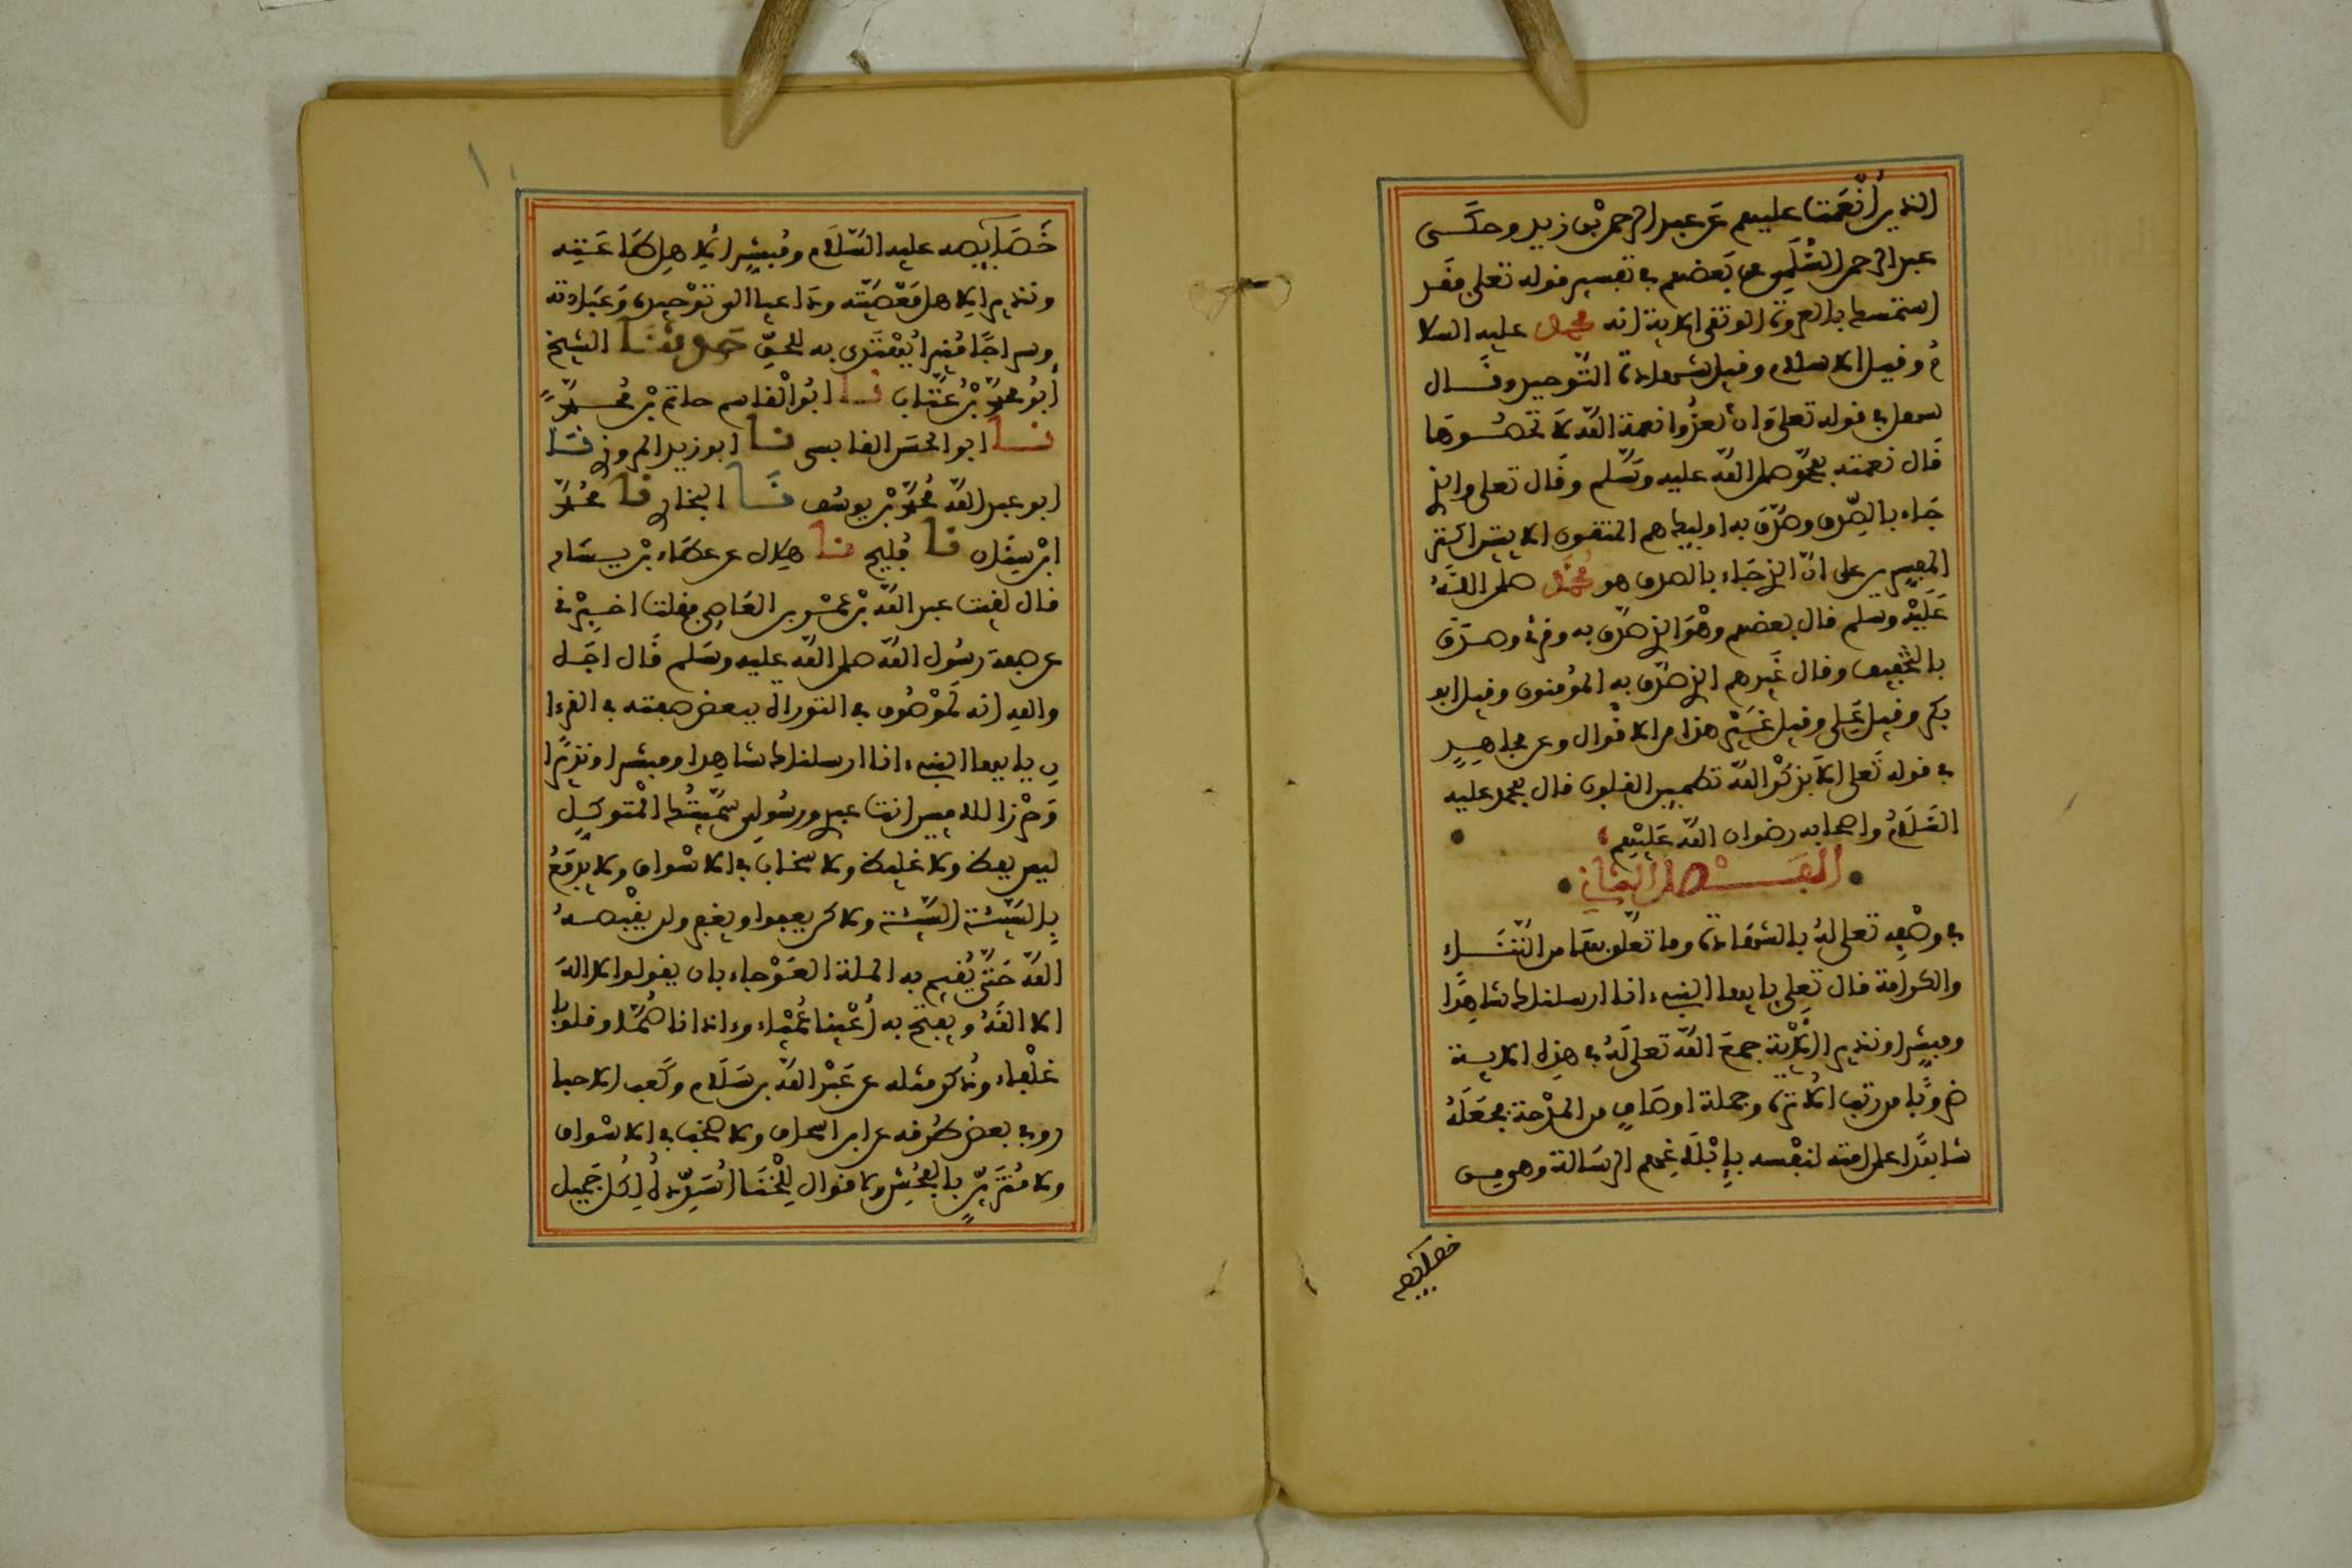 الذين أنعمت عليهم عن عبد الرحمن بن زيد وحكى
عبد الرحمن السلمي عن بعضهم في تفسير قوله تعلى فقد
استمسك بالعروة الوثقى الاية انه محمد عليه السلا
م وقيل الاسلام وقيل شهادة التوحيد وقال
سهل في قوله تعلى وان تعدوا نعمة الله لا تحصوها
قال نعمته بمحمد صلى الله عليه وسلم وقال تعلى والذي
جاء بالصدق وصدق به اوليك هم المتقون الايتين اكثر
المفسرين على ان الذي جاء بالصدق هو محمد صلى الله
عليه وسلم قال بعضهم وهو الذي صدق به وقرئ وصدق
بالتخفيف وقال غيرهم الذي صدق به المؤمنون وقيل ابو
بكر وقيل علي وقيل غير هذا من الاقوال وعن مجاهد
في قوله تعلى الا بذكر الله تطمين القلوب قال بمحمد عليه
السلام واصحابه رضوان الله عليهم
الفصل الثاني
في وصفه تعلى له بالشهادة وما تعلق بها من الثناء
والكرامة قال تعلى يا يها النبيء انا ارسلناك شاهدا
ومبشرا ونذيرا الاية جمع الله تعلى له في هذه الاية
ضروبا من رتب الاثرة وجملة اوصاف من المدحة فجعله
شاهدا على امته لنفسه بإبلاغهم الرسالة وهي من
خصايصه
خصايصه عليه السلام ومبشرا لاهل طاعته
ونذيرا لاهل معصيته وداعيا الى توحيده وعبادته
وسراجا منيرا يهتدى به للحق حدثنا الشيخ
أبو محمد بن عتاب نا ابو القاسم حاتم بن محمد
نا ابو الحسن القابسي نا ابو زيد المروزي نا
ابو عبد الله محمد بن يوسف نا البخاري نا محمد
ابن سنان نا فليح نا هلال عن عطاء بن يسار
قال لقيت عبد الله بن عمرو بن العاصي فقلت اخبرني
عن صفة رسول الله صلى الله عليه وسلم قال اجل
والله انه لموصوف في التوراة ببعض صفته في القرءا
ن يا يها النبيء انا ارسلناك شاهدا ومبشرا ونذيرا
وحرزا للاميين انت عبدي ورسولي سميتك المتوكل
ليس بفظ ولا غليظ ولا سخاب في الاسواق ولا يدفع
بالسيئة السيئة ولاكن يعفوا ويغفر ولن يقبضه
الله حتى يقيم به الملة العوجاء بان يقولوا لا اله
الا الله ويفتح به أعينا عمياء وءاذانا صما وقلوبا
غلفاء وذكر مثله عن عبد الله بن سلام وكعب الاحبا
روفي بعض طرقه عن ابن اسحاق ولا صخب في الاسواق
ولا متزين بالفحش ولا قوال للخنا أسدده لكل جميل